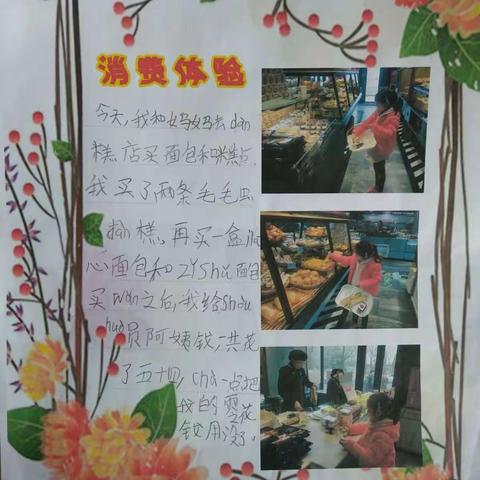 消费体验
今天,我和妈妈去dàn
糕店买面包和糕点,
我买了两条毛毛虫
dàn糕,再买一盒
心面包和ZǐShǔ面包
买wán之后,我给Shòu
huò员阿姨钱,一共花
了五十四,Chà一点把
我的零花
钱用没了。